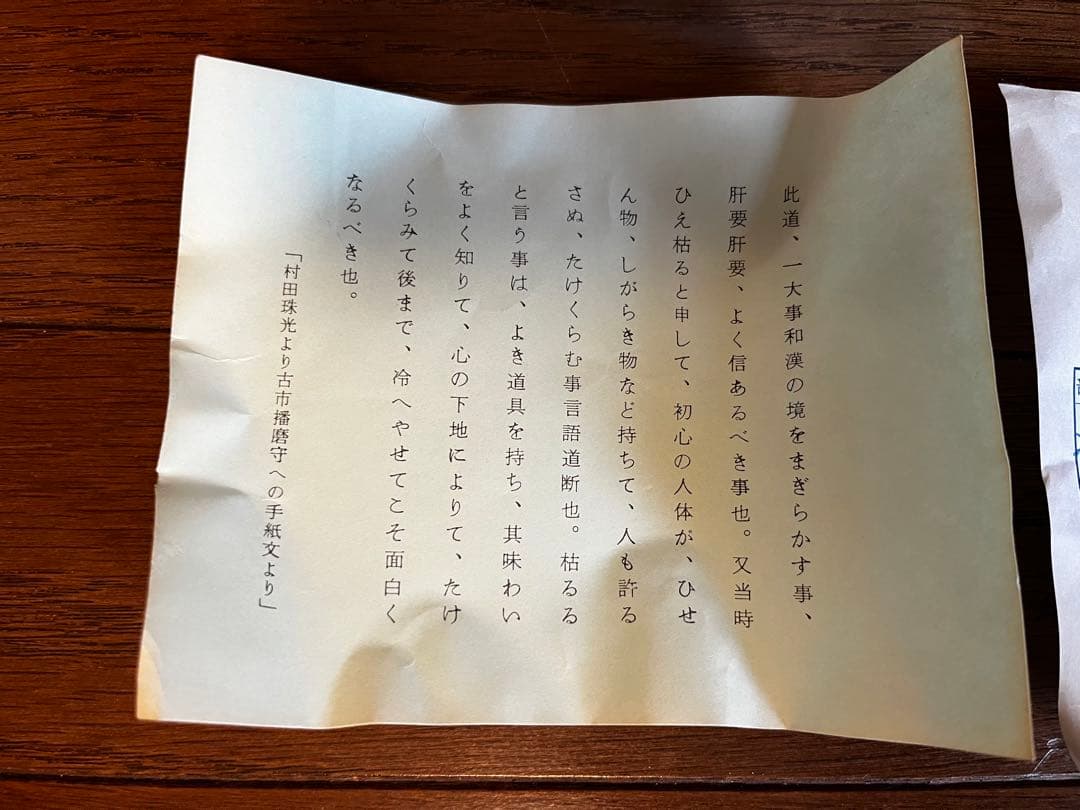 此道、一大事和漢の境をまぎらかす事、
肝要肝要、よく信あるべき事也。又当時
ひえ枯ると申して、初心の人体が、ひせ
ん物、しがらき物など持ちて、人も許る
さぬ、たけくらむ事言語道断也。枯るる
と言う事は、よき道具を持ち、其味わい
をよく知りて、心の下地によりて、たけ
くらみて後まで、冷へやせてこそ面白く
なるべき也。
「村田珠光より古市播磨守への手紙文より」